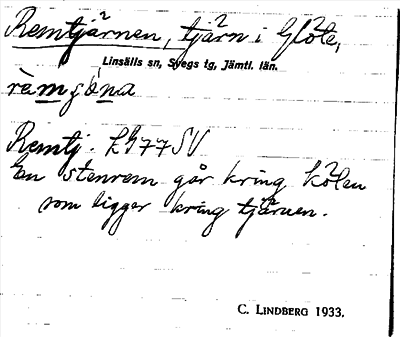 Remtjärnen, tjärn i Glöte,
Linsälls sn, Svegs tg, Jämtl. län.
Remtj. LG77SV
En stenrem går kring kölen
som ligger kring tjärnen.
C. LINDBERG 1933.